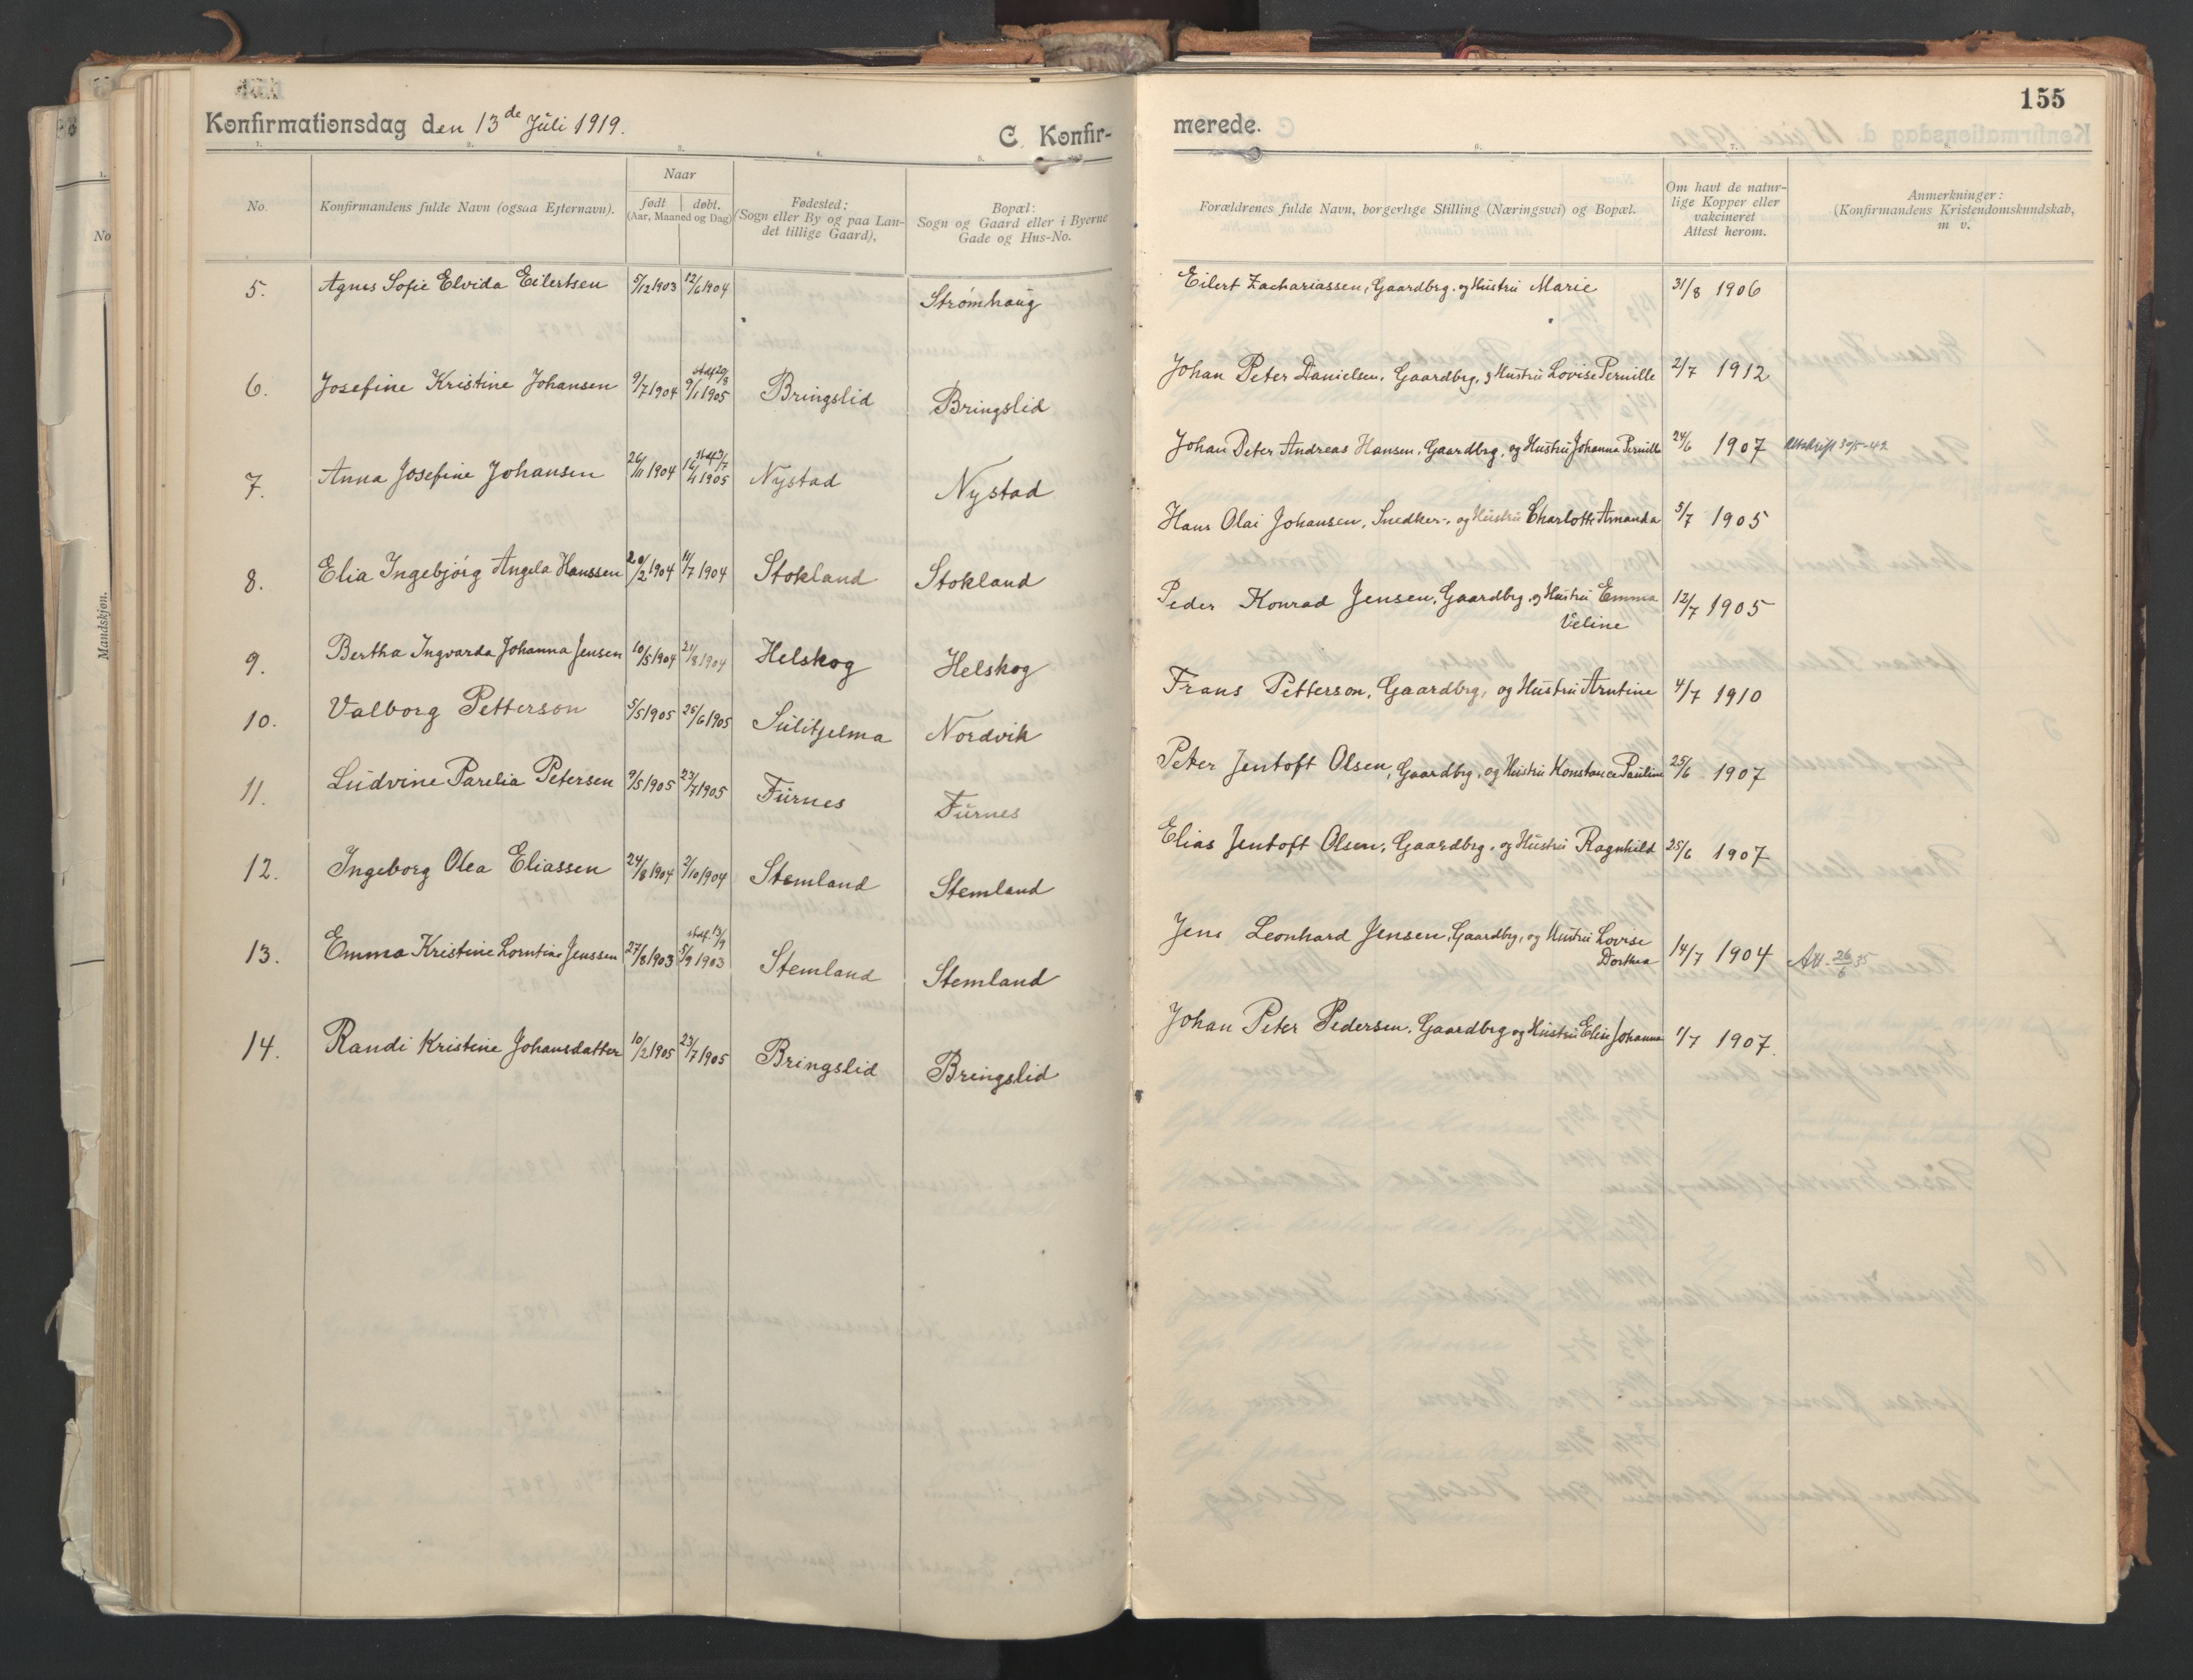 Konfirmationsdag den 13de Juli 1919.
C. Konfir-
1. 2. 3. 4. 5.
No.
Konfirmandens fulde Navn (ogsaa Efternavn).
Naar
født
døbt.
(Aar, Maaned og Dag)
Fødested:
(Sogn eller By og paa Lan-
det tillige Gaard),
Bopæl:
Sogn og Gaard eller i Byerne
Gade og Hus-No.
5. Agnes Sofie Elvida Eilertsen 5/12 1903 12/6 1904 Strømhaug
6. Josefine Kristine Johansen 9/7 1904 9/1 1905 Bringslid Bringslid
7. Anna Josefine Johansen 26/11 1904 1905 Nystad Nystad
8. Elia Ingebjørg Angela Hanssen 20/2 1904 11/7 1904 Stokland Stokland
9. Bertha Ingvarda Johanna Jensen 10/5 1904 21/8 1904 Helskog Helskog
10. Valborg Petterson 5/5 1905 25/6 1905 Sulitjelma Nordvik
11. Ludvine Parelia Petersen 9/5 1905 23/7 1905 Furnes Furnes
12. Ingeborg Olea Eliassen 24/8 1904 2/10 1904 Stemland Stemland
13. Emma Kristine Lorntine Jenssen 27/8 1903 staf. 13/9 5/9 1903 Stemland Stemland
14. Randi Kristine Johansdatter 10/2 1905 23/7 1905 Bringslid Bringslid
155
merede.
6. 7. 8.
Forældrenes fulde Navn, borgerlige Stilling (Næringsvei) og Bopæl.
Om havt de natur-
lige Kopper eller
vakcineret
Attest herom.
Anmerkninger:
(Konfirmandens Kristendomskundskab,
m v.
Eilert Zachariassen, Gaardbrg. og Hustru Marie 31/8 1906
Johan Peter Danielsen, Gaardbrg. og Hustru Lovise Pernille 2/7 1912
Johan Peter Andreas Hansen, Gaardbrg, og Hustru Johanna Pernille 24/6 1907 Utskrift 30/5-42
Hans Olai Johansen, Snedker, og Hustru Charlotte Amanda 5/7 1905
Peder Konrad Jensen, Gaardbrg, og Hustru Emma 12/7 1905
Veline
Frans Petterson, Gaardbrg, og Hustru Arntine 4/7 1910
Peter Jentoft Olsen, Gaardbrg, og Hustru Konstance Pauline 25/6 1907
Elias Jentoft Olsen, Gaardbrg, og Hustru Ragnhild 25/6 1907
Jens Leonhard Jensen, Gaardbrg, og Hustru Lovise
Dorthea 14/7 1904 Att. 26/6 35
Johan Peter Pedersen, Gaardbrg og Hustru Elise Johanna 1/7 1907.
Mandskjøn.
No
1.